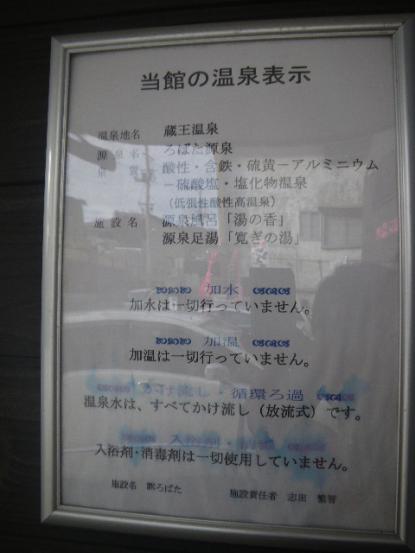 当館の温泉表示
温泉地名 蔵王温泉
源泉名 ろばた源泉
泉質 酸性・含鉄・硫黄－アルミニウム
－硫酸塩・塩化物温泉
(低張性酸性高温泉)
施設名 源泉風呂「湯の香」
源泉足湯「寛ぎの湯」
加水
加水は一切行っていません。
加温
加温は一切行っていません。
かけ流し・循環ろ過
温泉水は、すべてかけ流し(放流式)です。
入浴剤・
入浴剤・消毒剤は一切使用していません。
施設名 ろばた 施設責任者 志田